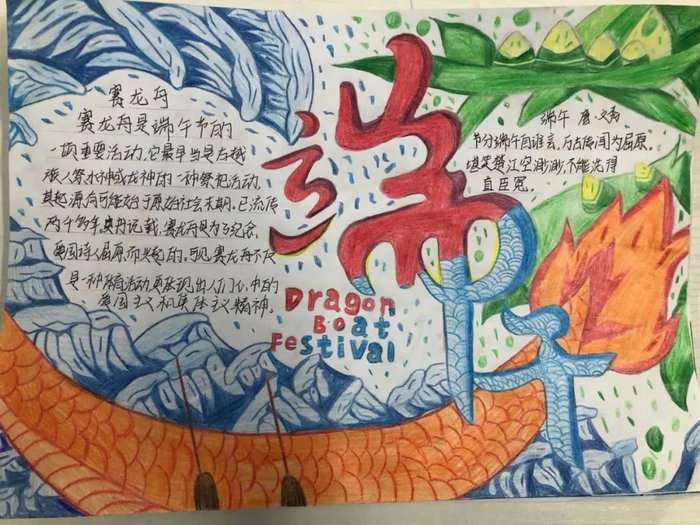 赛龙舟
赛龙舟是端午节的
一项重要活动,它最早当是古越
族人祭水神或龙神的一种祭祀活动,
其起源有可能始于原始社会末期.已流传
两千多年,史册记载,赛龙舟是为了纪念
爱国诗人屈原而兴起的.可见赛龙舟不仅
是一种体育活动,更体现出人们心中的
爱国主义和集体主义精神。
端午
Dragon
Boat
Festival
端午 唐 文秀
节分端午自谁言,万古传闻为屈原.
堪笑楚江空渺渺,不能洗得
直臣冤。